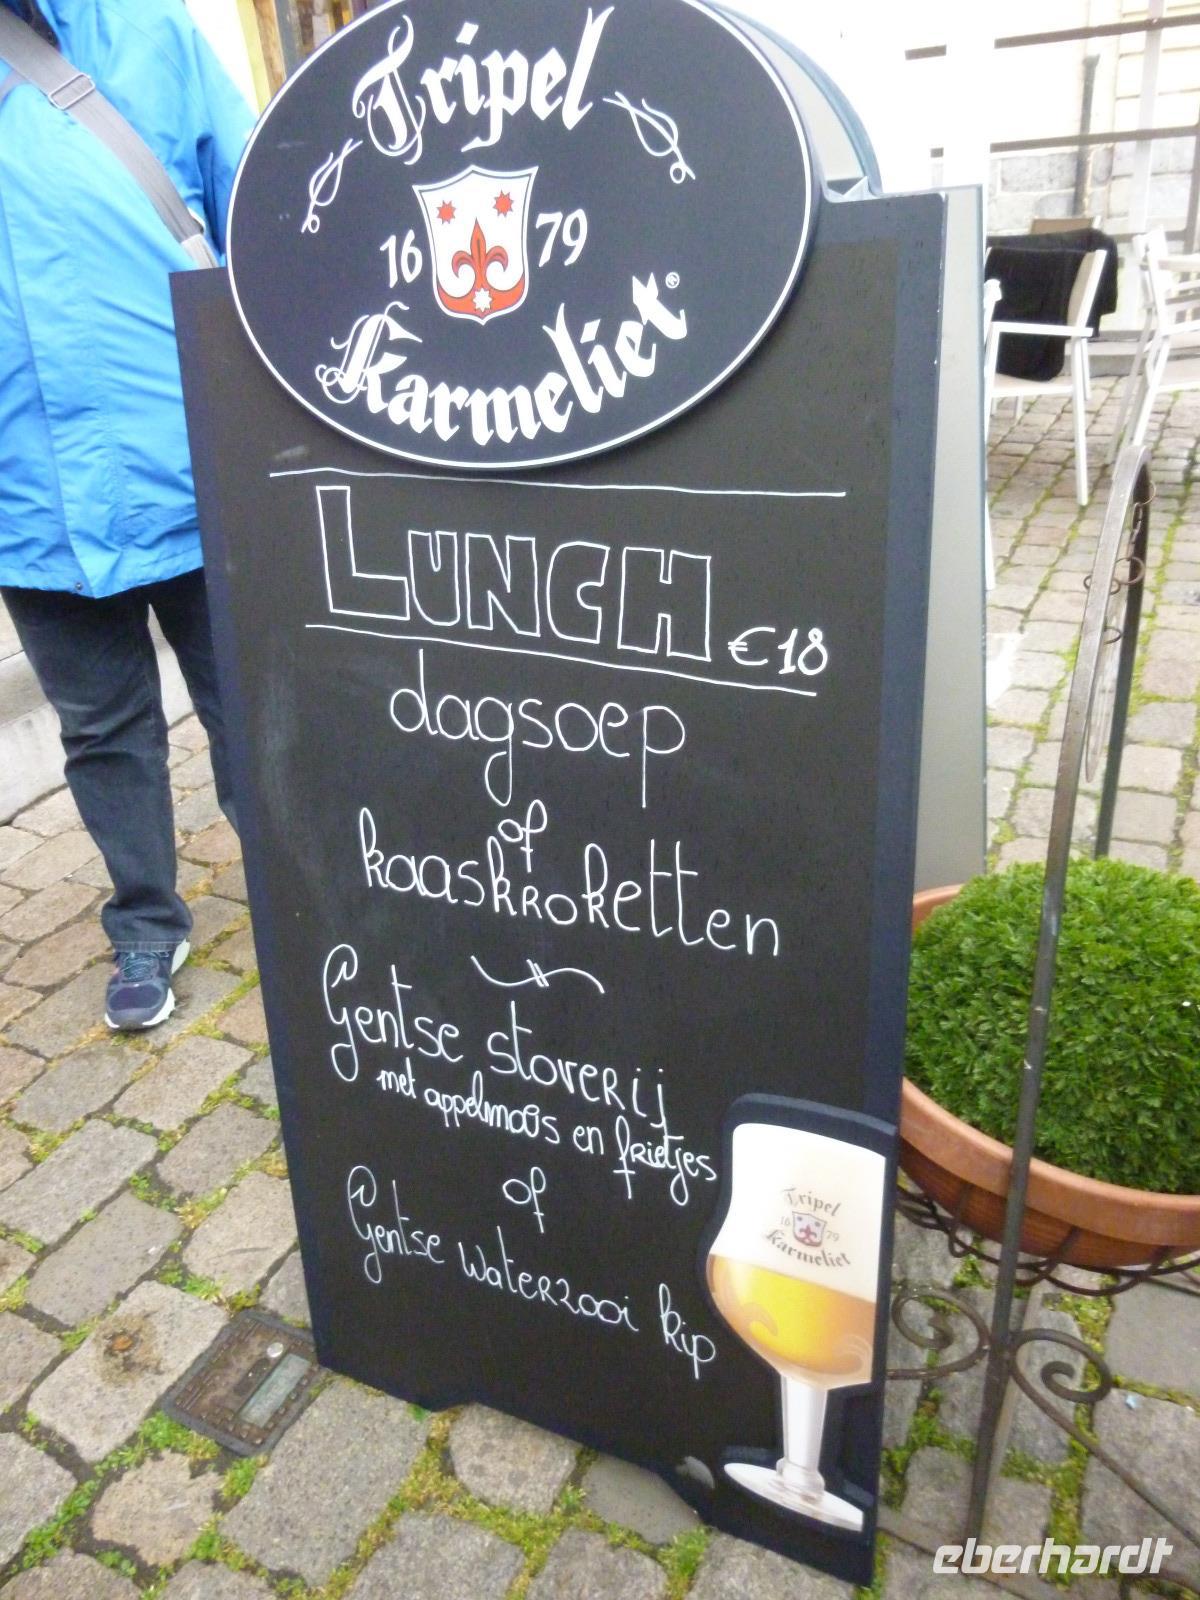 Tripel
16 79
Karmeliet®
LUNCH €18
dagsoep
of
kaaskroketten
Gentse stoverij
met appelmoes en frietjes
of
Gentse waterzooi kip
Tripel
16 79
Karmeliet
eberhardt